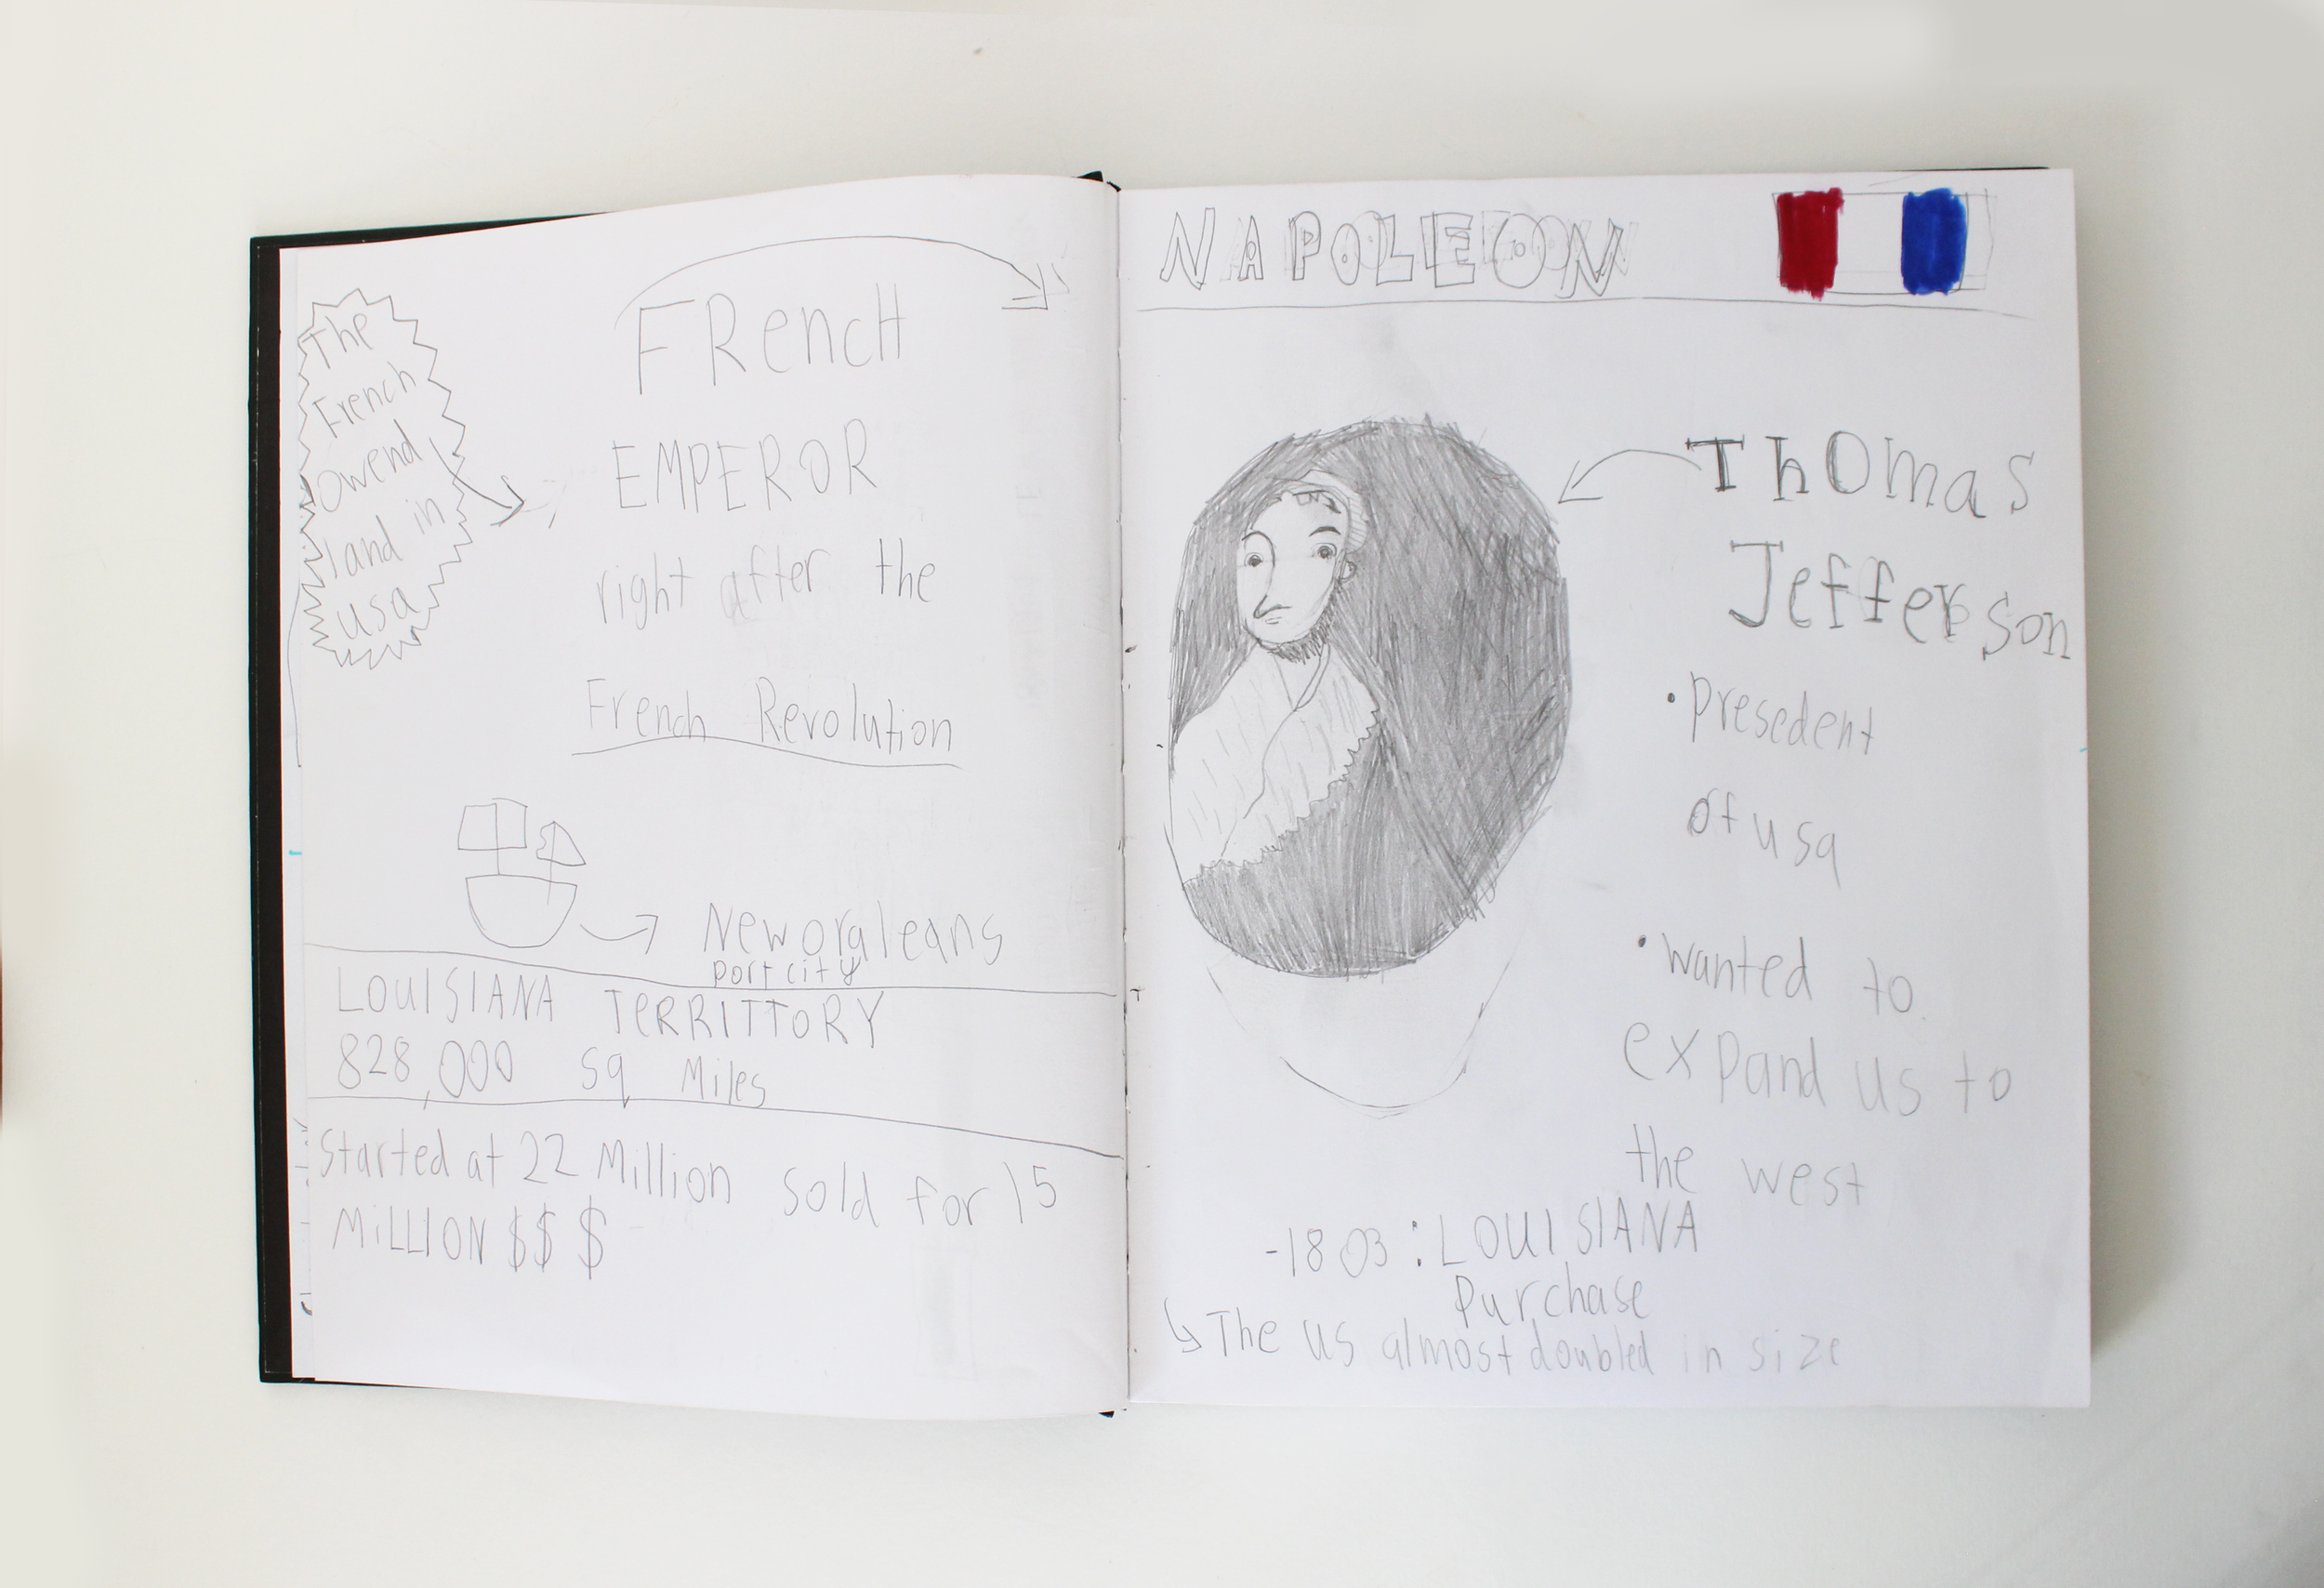 The
French
Owend
land in
usa
FRencH
EMPEROR
right after the
French Revolution
New oraleans
port city
LOUISIANA TERRITTORY
828,000 sq Miles
Started at 22 Million sold for 15
MiLLION $$$
NAPOLEON
Thomas
Jefferson
• presedent
of usa
• wanted to
expand us to
the west
-1803: LOUISIANA
Purchase
↳ The us almost doubled in size